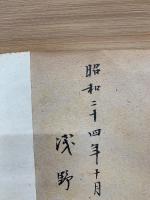 昭和二十四年十月
浅野